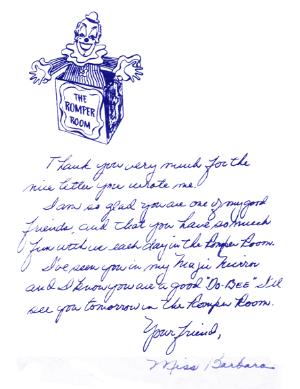 THE
ROMPER
ROOM
Thank you very much for the
nice letter you wrote me.
I am so glad you are one of my good
friends, and that you have so much
fun with us each day in the Romper Room.
I've seen you in my Magic Mirror
and I know you are a good "Do-Bee" I'll
see you tomorrow in the Romper Room.
Your friend,
Miss Barbara